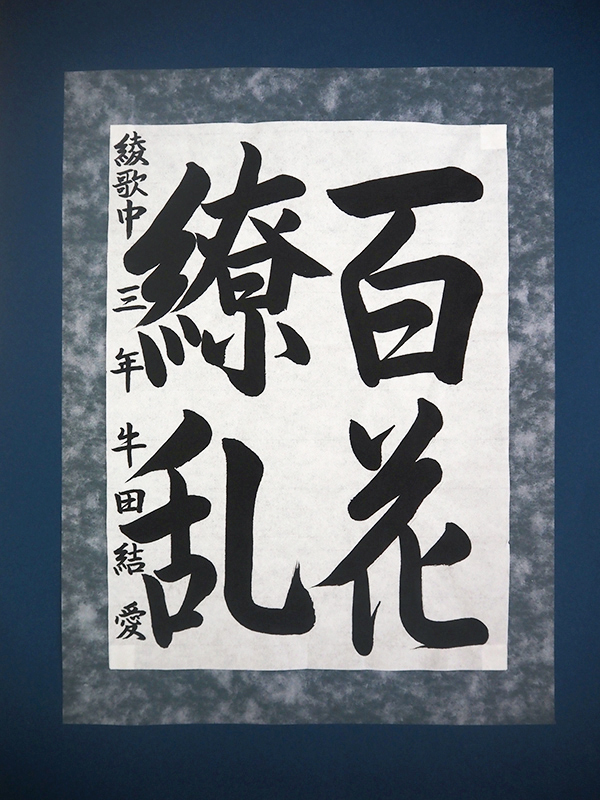 百花
繚乱
綾歌中 三年 牛田結愛